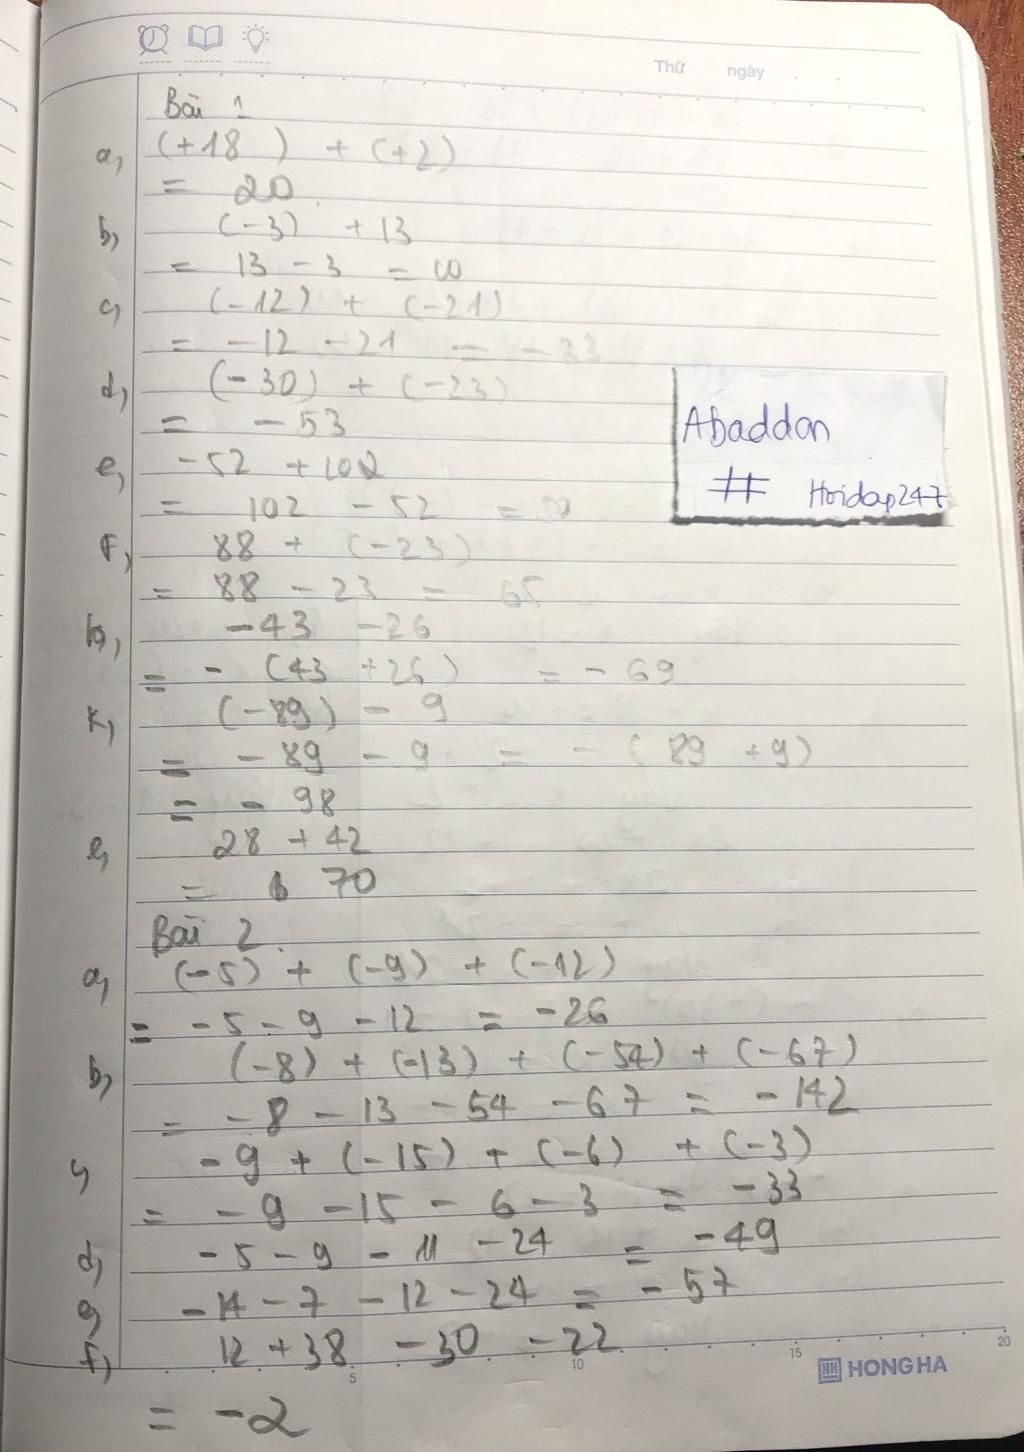 Thứ ngày
Bài 1
a, (+18) + (+2)
= 20
b, (-3) + 13
= 13 - 3 = 10
c, (-12) + (-21)
= -12 - 21 = -33
d, (-30) + (-23)
= -53
e, -52 + 102
= 102 - 52 =
f, 88 + (-23)
= 88 - 23 = 65
-43 - 26
= - (43 + 26) = - 69
k, (-89) - 9
= - 89 - 9 = - (89 + 9)
= - 98
28 + 42
= 70
Abaddon
# Hoidap247
Bài 2
a, (-5) + (-9) + (-12)
= -5 - 9 - 12 = -26
b, (-8) + (-13) + (-54) + (-67)
= -8 - 13 - 54 - 67 = -142
c, -9 + (-15) + (-6) + (-3)
= -9 - 15 - 6 - 3 = -33
d, -5 - 9 - 11 - 24 = -49
-14 - 7 - 12 - 24 = -57
f, 12 + 38 - 30 - 22
5 10 15 20
HH HONG HA
= -2